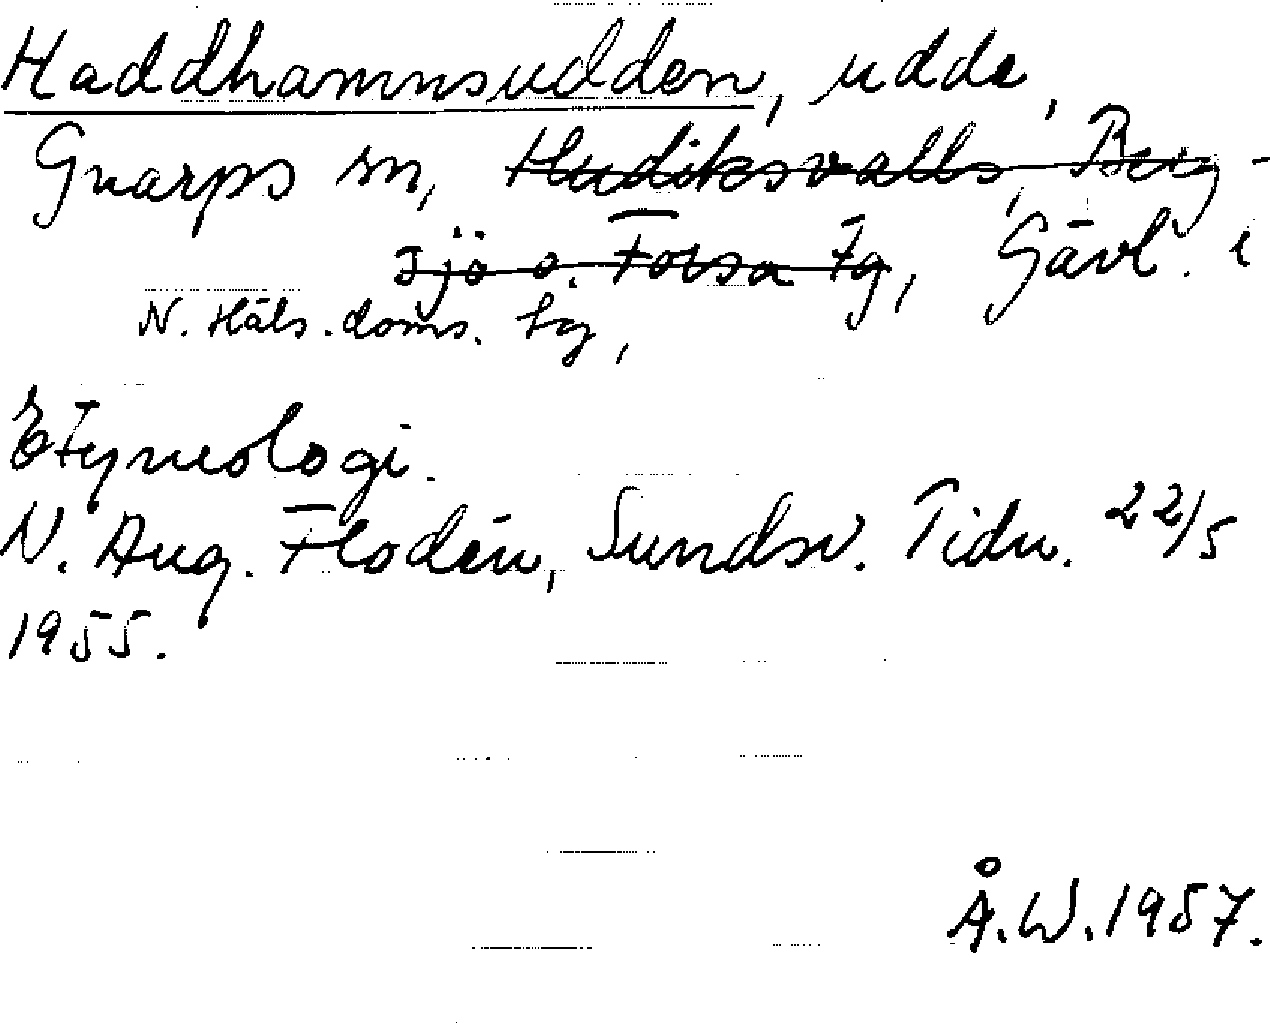 Haddhamnsudden, udde,
Gnarps sn, Hudiksvalls, Berg-
sjö o. Forsa Tg, Gävl. l
N. Häls. doms. tg,
Etymologi.
N. Aug. Flodén, Sundsv. Tidn. 22/5
1955.
Å. W. 1957.